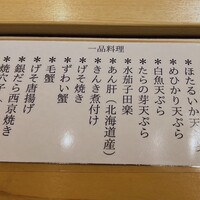 一品料理
*ほたるいか天
*めひかり天ぷら
*白魚天ぷら
*たらの芽天ぷら
*水茄子田楽
*あん肝(北海道産)
*きんき煮付け
*げそ焼き
*ずわい蟹
*毛蟹
*げそ唐揚げ
*銀だら西京焼き
*焼穴子